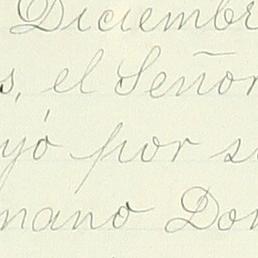 Diciembr
s, el Señor
yó por s
mano Don